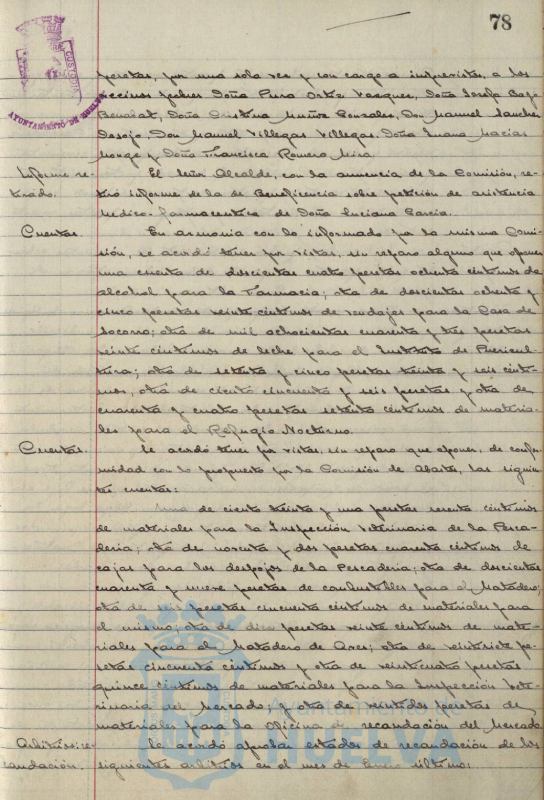 78
AYUNTAMIENTO DE HUELVA
CUSTODIA
pesetas, por una sola vez y con cargo a imprevistos, a los
vecinos pobres Doña Pura Ortiz Vazquez, Doña Josefa Bago
Benabat, Doña Cristina Muñoz Gonzales, Don Manuel Sanchez
Don Manuel Villegas Villegas, Doña Juana Macias
Monge y Doña Francisca Romero Mira.
Informe re-
tirado.
El Señor Alcalde, con la anuencia de la Comisión, re-
tiró informe de la de Beneficencia sobre petición de asistencia
Médico-farmaceutica de Doña Luciana Garcia.
Cuentas.
En armonia con lo informado por la misma Comi-
sión, se acordó tener por vistas, sin reparo alguno que oponer
una cuenta de doscientas cuatro pesetas ochenta céntimos de
alcohol para la Farmacia; otra de doscientas ochenta y
cinco pesetas veinte céntimos de vendajes para la Casa de
Socorro; otra de mil ochocientas cuarenta y tres pesetas
veinte céntimos de leche para el Instituto de Puericul-
tura; otra de setenta y cinco pesetas treinta y seis cénti-
mos, otra de ciento cincuenta y seis pesetas y otra de
cuarenta y cuatro pesetas setenta céntimos de materia-
les para el Refugio Nocturno.
Cuentas.
Se acordó tener por vistas, sin reparo que oponer, de confor-
midad con lo propuesto por la Comisión de Abastos, las siguien-
tes cuentas:
Una de ciento treinta y una pesetas sesenta céntimos
de materiales para la Inspección Veterinaria de la Pesca-
deria; otra de noventa y dos pesetas cuarenta céntimos de
cajas para los despojos de la Pescaderia; otra de doscientas
cuarenta y nueve pesetas de combustibles para el Matadero;
otra de seis pesetas cincuenta céntimos de materiales para
el mismo; otra de diez pesetas veinte céntimos de mate-
riales para el Matadero de Aves; otra de veintisiete pe-
setas cincuenta céntimos y otra de veinticuatro pesetas
quince céntimos de materiales para la Inspección Vete-
rinaria del Mercado; y otra de veintidos pesetas de
materiales para la Oficina de recaudación del Mercado
Arbitrios: re-
caudación.
Se acordó aprobar estados de recaudación de los
siguientes arbitrios en el mes de Enero último:
Ayuntamiento de
HUELVA